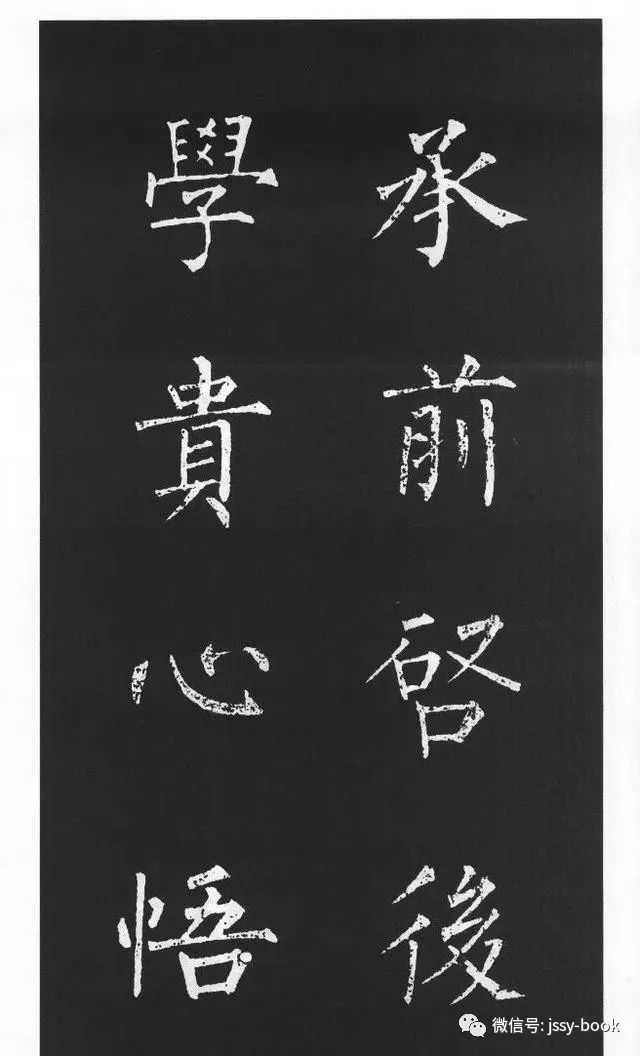 承前啓後
學貴心悟
微信号: jssy-book